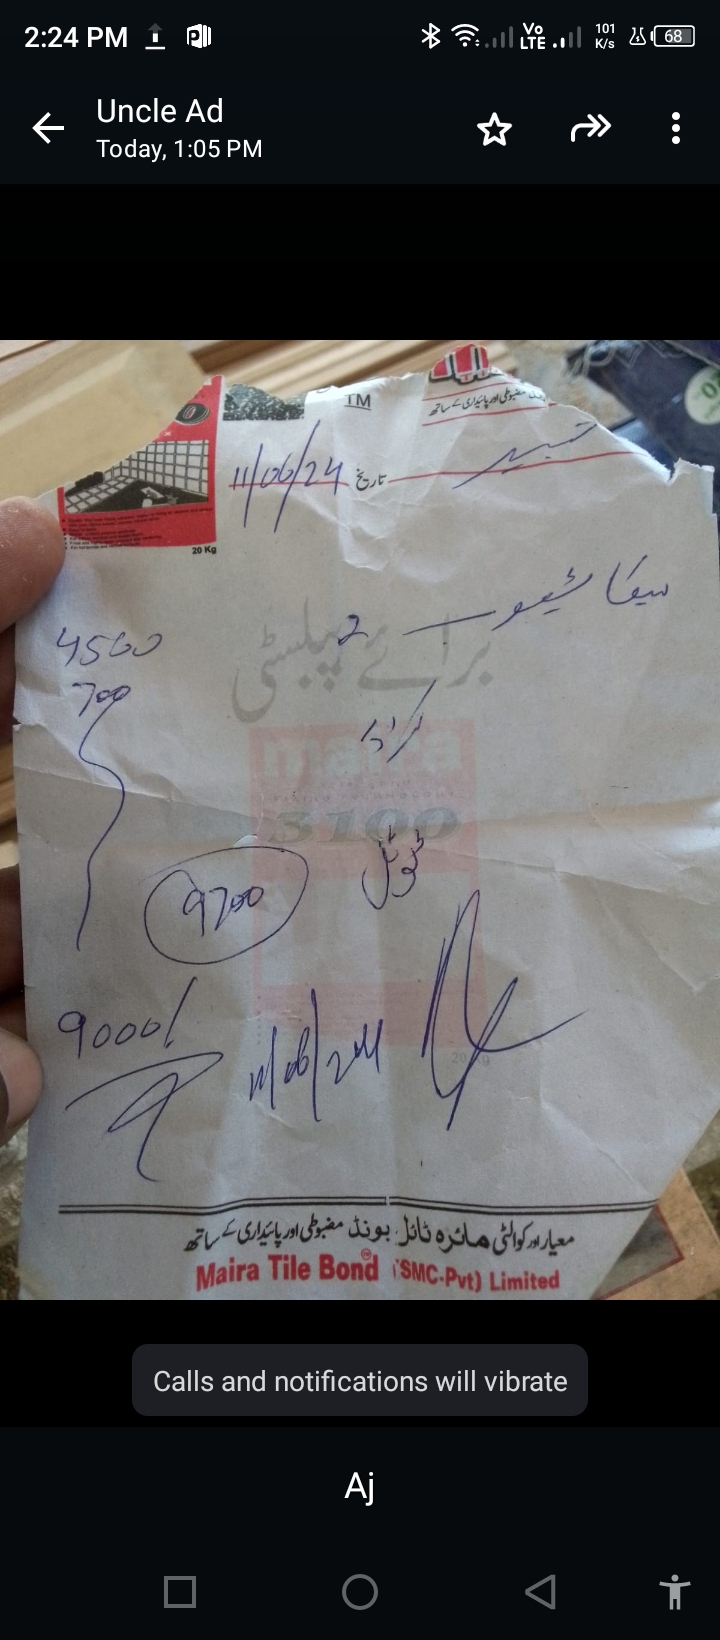 2:24 PM Vo LTE 101 K/s 68
Uncle Ad
Today, 1:05 PM
TM
مضبوطی اور پائیداری کے ساتھ
11/06/24 تاریخ شبیر
20 Kg
4500 2
برائے پبلسٹی
700 کرایہ
maira
3100
9700 ٹوٹل
9000/
11/06/2024
20 kg
معیار اور کوالٹی مائرہ ٹائل بونڈ مضبوطی اور پائیداری کے ساتھ
Maira Tile Bond (SMC-Pvt) Limited
Calls and notifications will vibrate
Aj